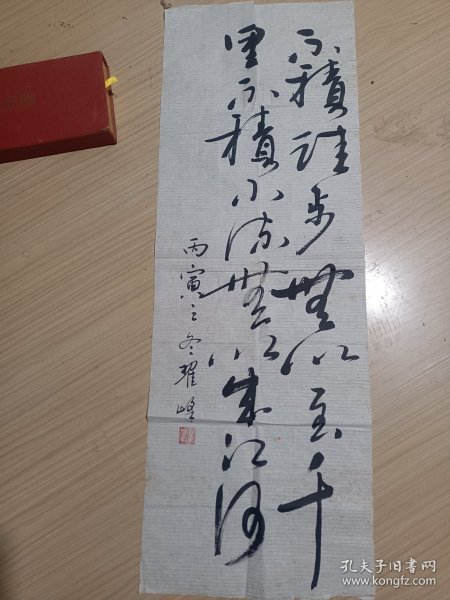 不積跬步無以至千
里不積小流無以成江河
丙寅之冬耀峰
孔夫子旧书网
www.kongfz.com